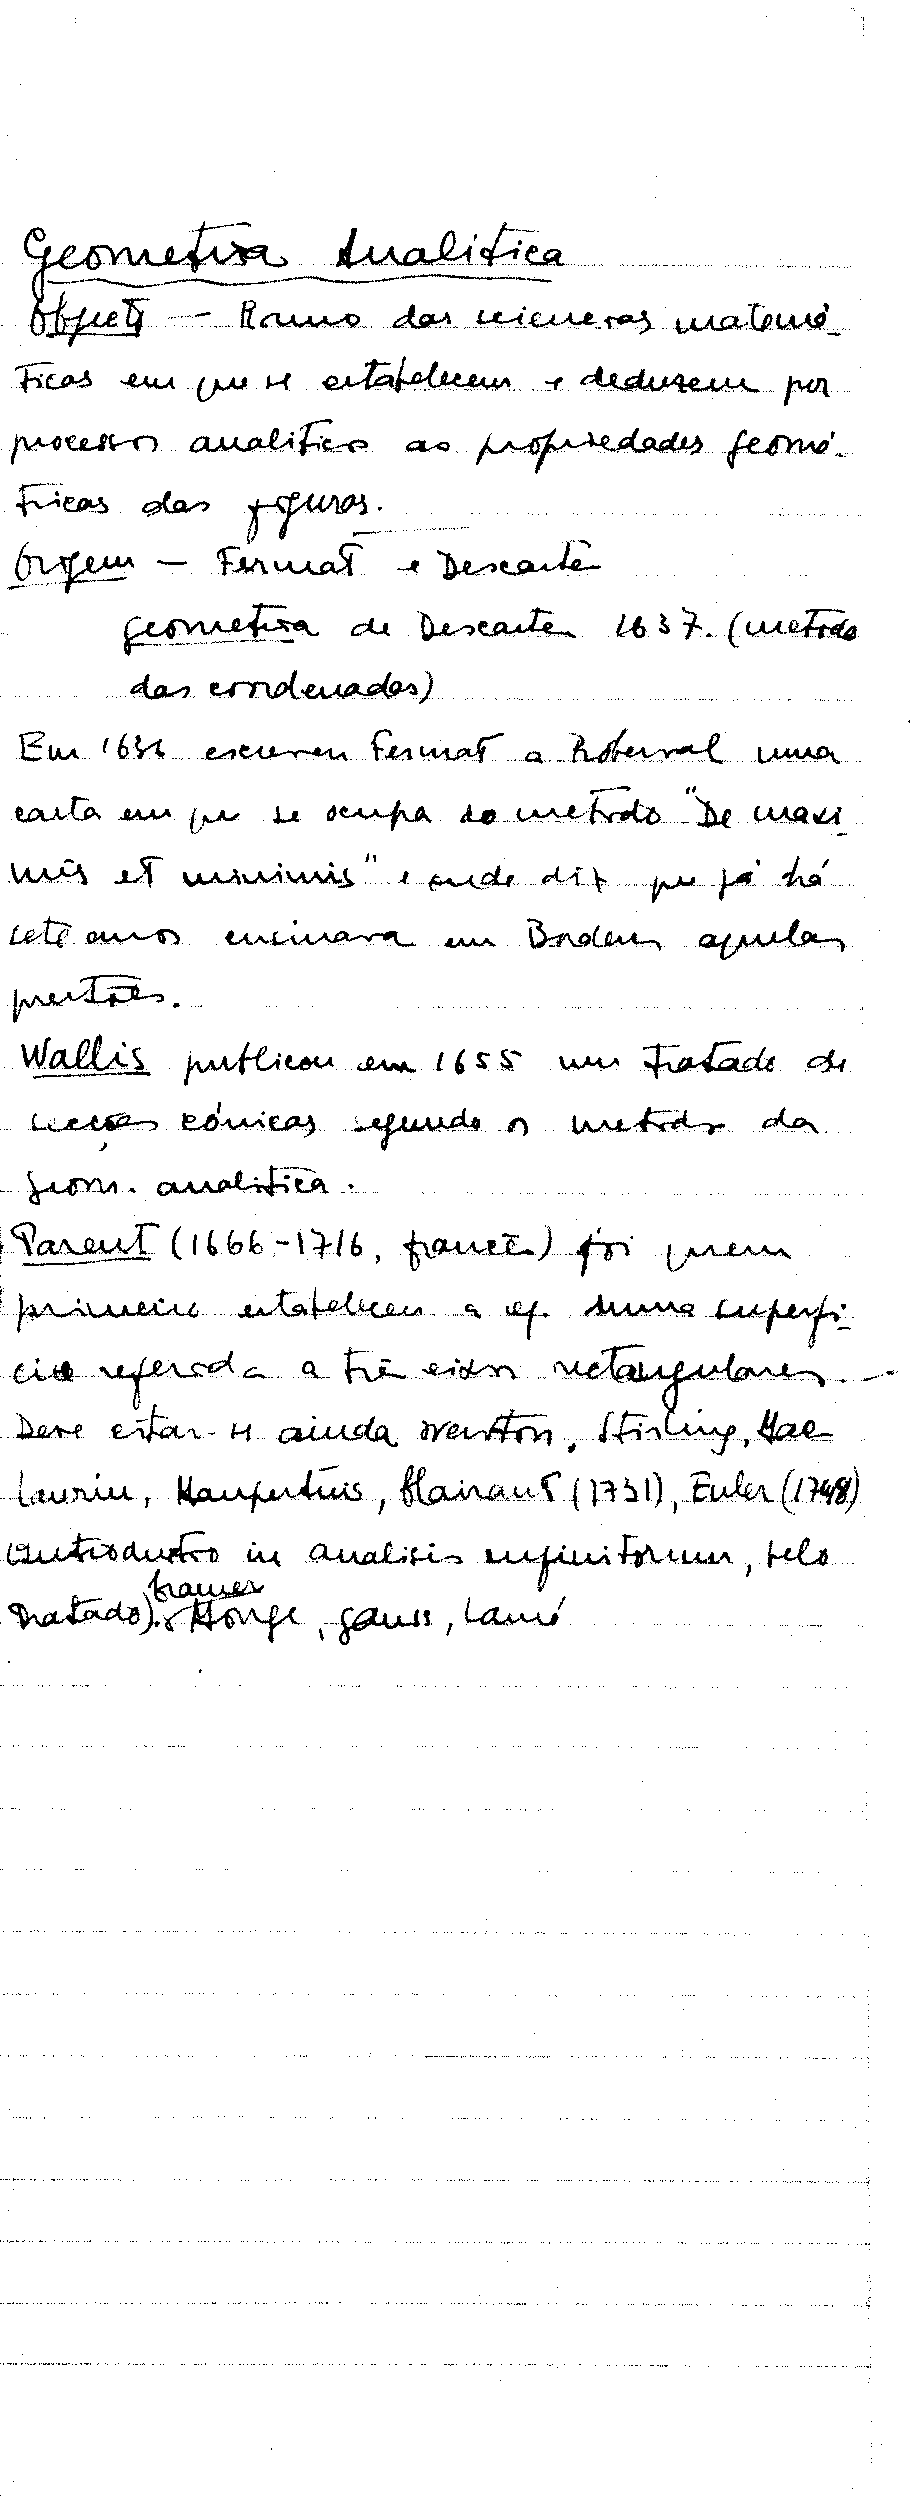 Geometria Analitica
Objecto — Ramo das sciencias matemá-
ticas em que se estabelecem e deduzem por
processos analiticos as propriedades geomé-
tricas das figuras.
Origem — Fermat e Descartes
geometria de Descartes 1637. (metodo
das coordenadas)
Em 1636 escreveu Fermat a Roberval uma
carta em que se ocupa do metodo "De maxi-
mis et minimis" e onde diz que já há
sete anos ensinara em Bordeus aquelas
questões.
Wallis publicou em 1655 um tratado de
secções cónicas segundo o metodo da
geom. analitica.
Parent (1666-1716, francês) foi quem
primeiro estabeleceu a eq. duma superfi-
cie referida a três eixos retangulares.
Deve citar-se ainda Newton, Stirling, Mac-
Laurin, Maupertuis, Clairaut (1731), Euler (1748)
(Introductio in analisis infinitorum, belo
tratado). Cramer
Monge, Gauss, Lamé